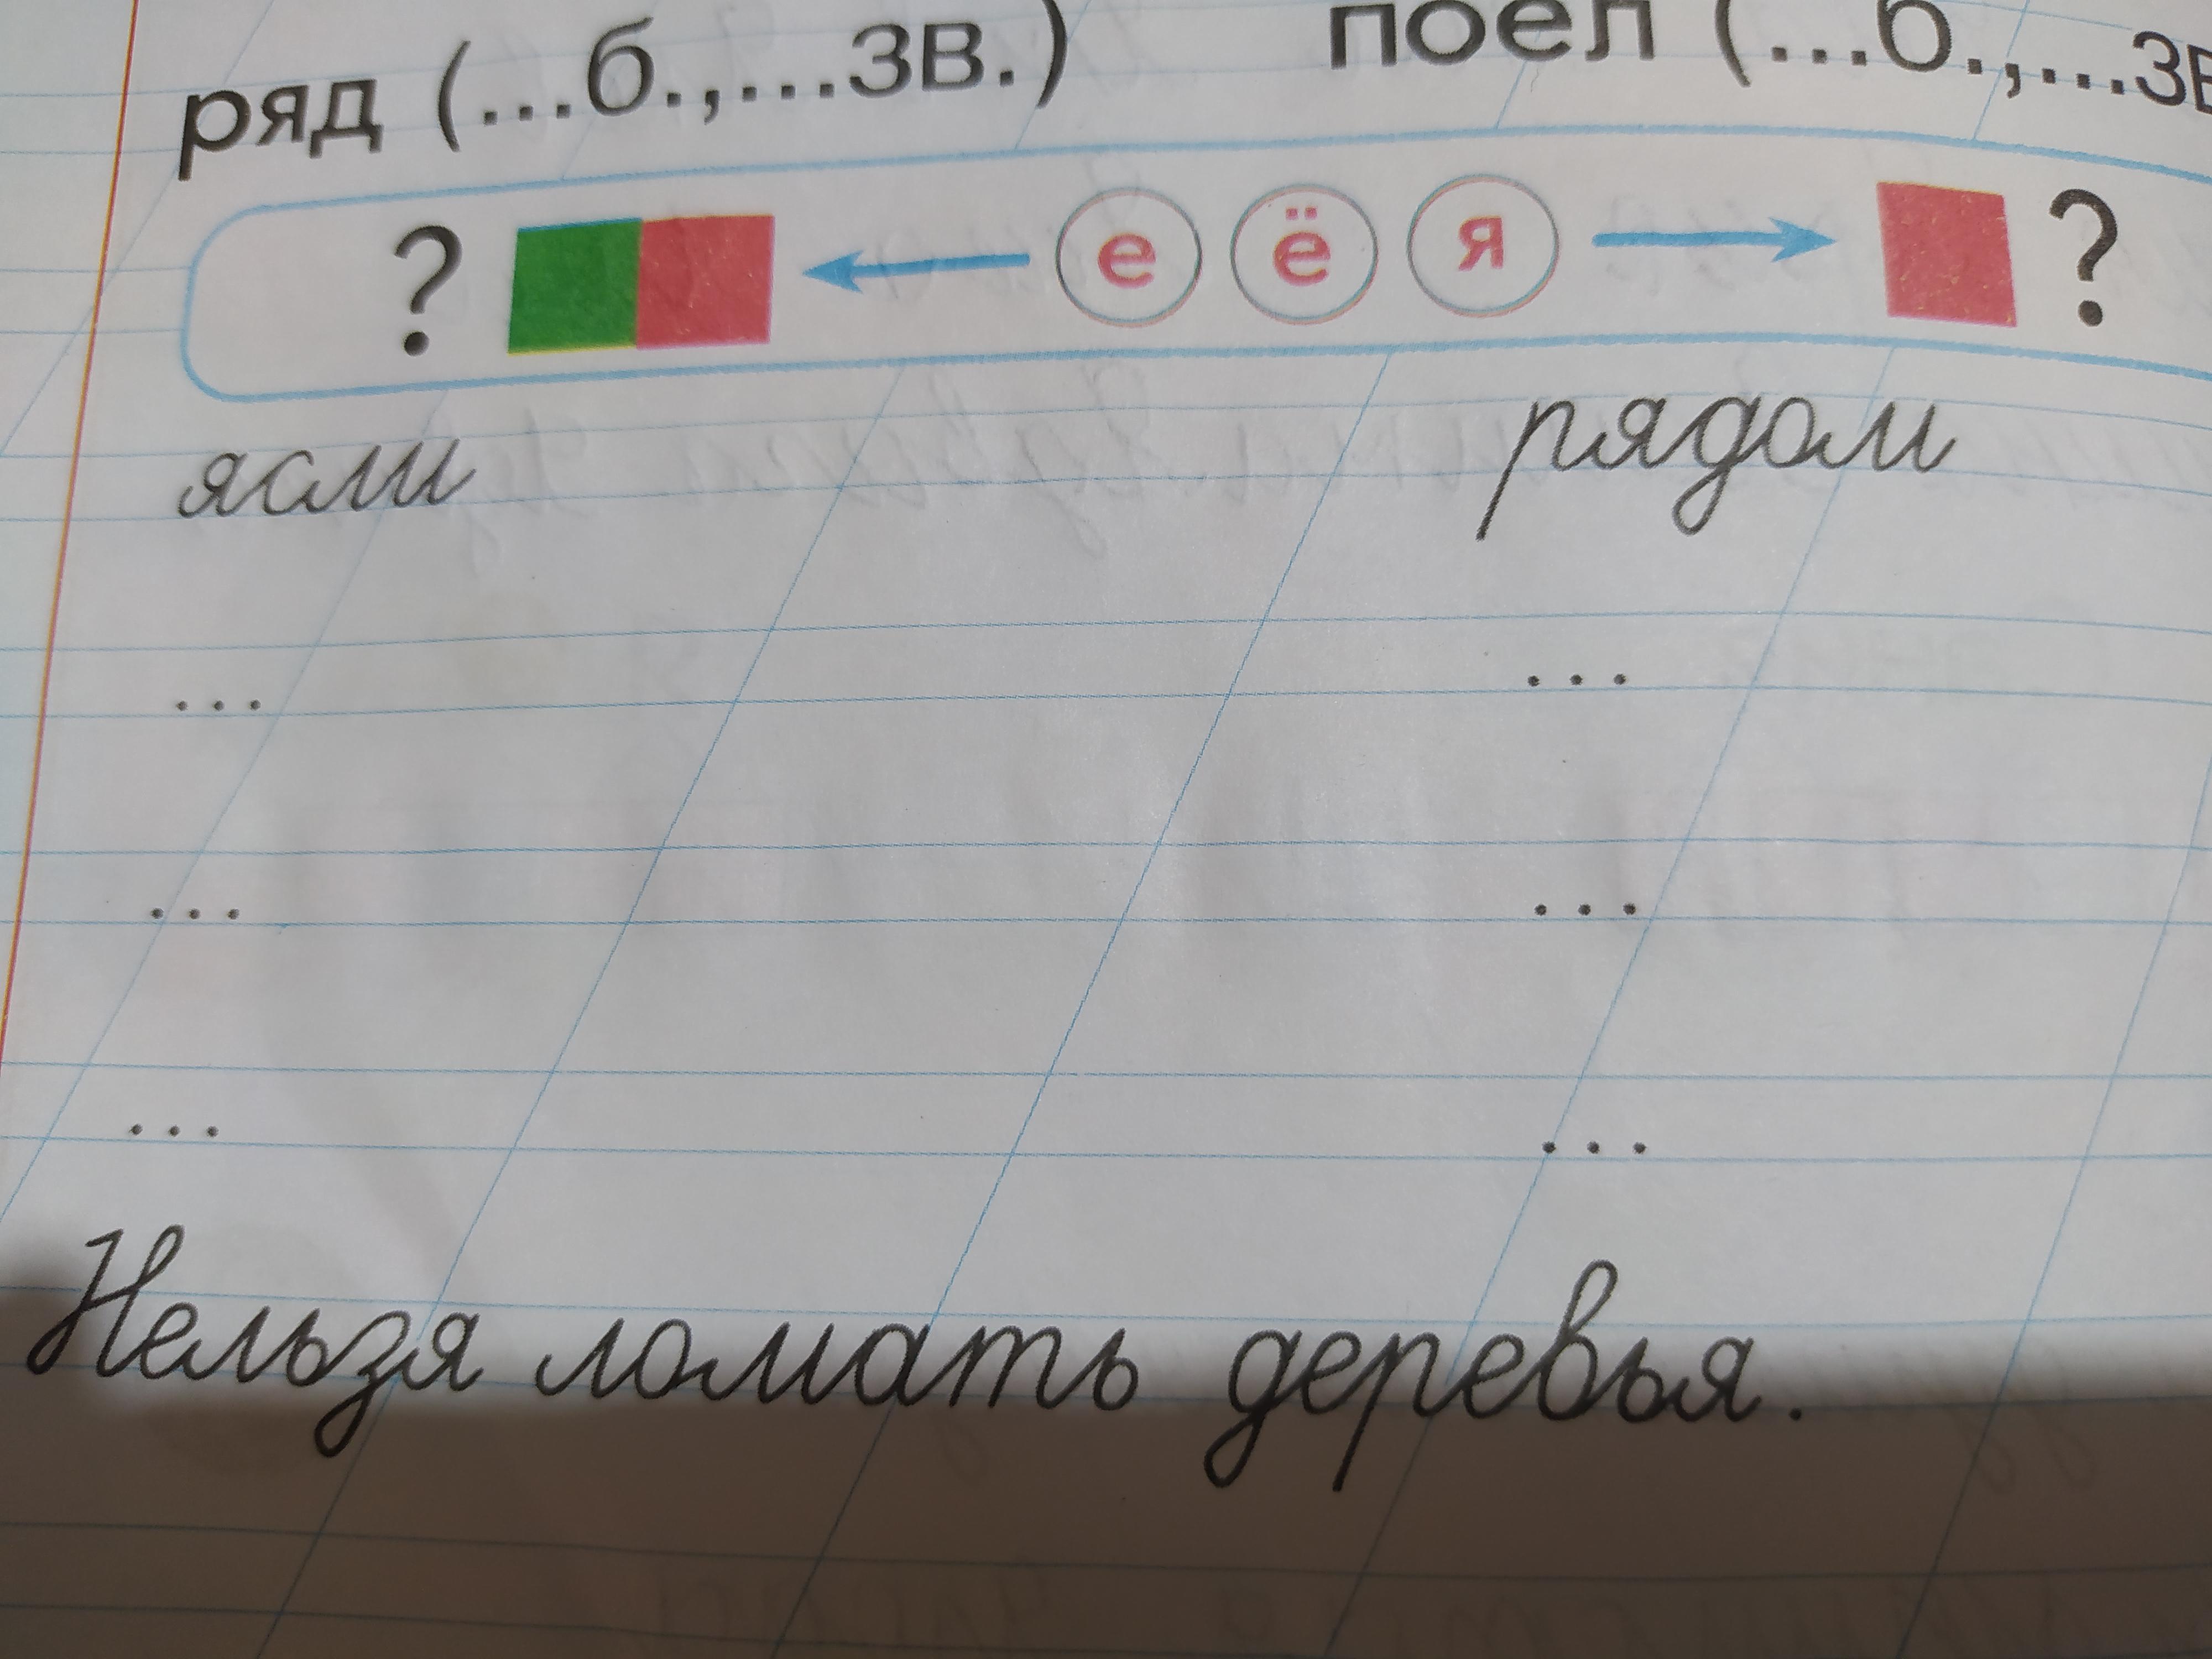 ряд (...б.,...зв.) поел (...б.,...зв
? е ё я ?
ясли рядом
... ...
... ...
... ...
Нельзя ломать деревья.